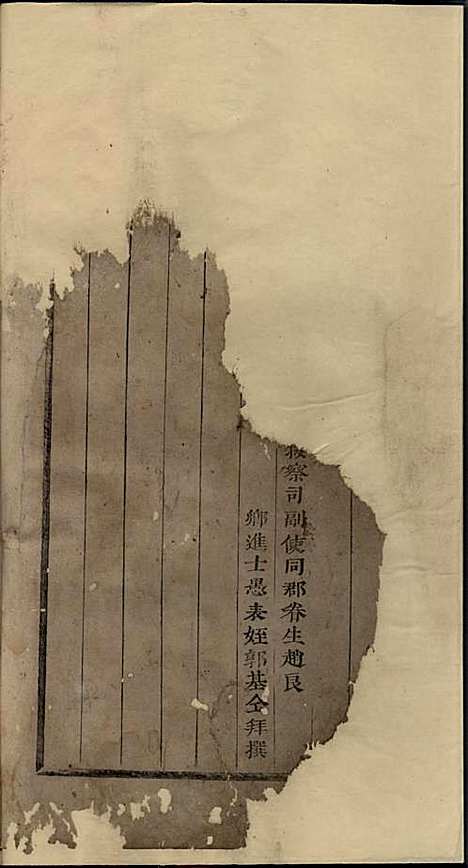 察司副使同郡眷生趙艮
鄉進士愚表姪郭基仝拜撰